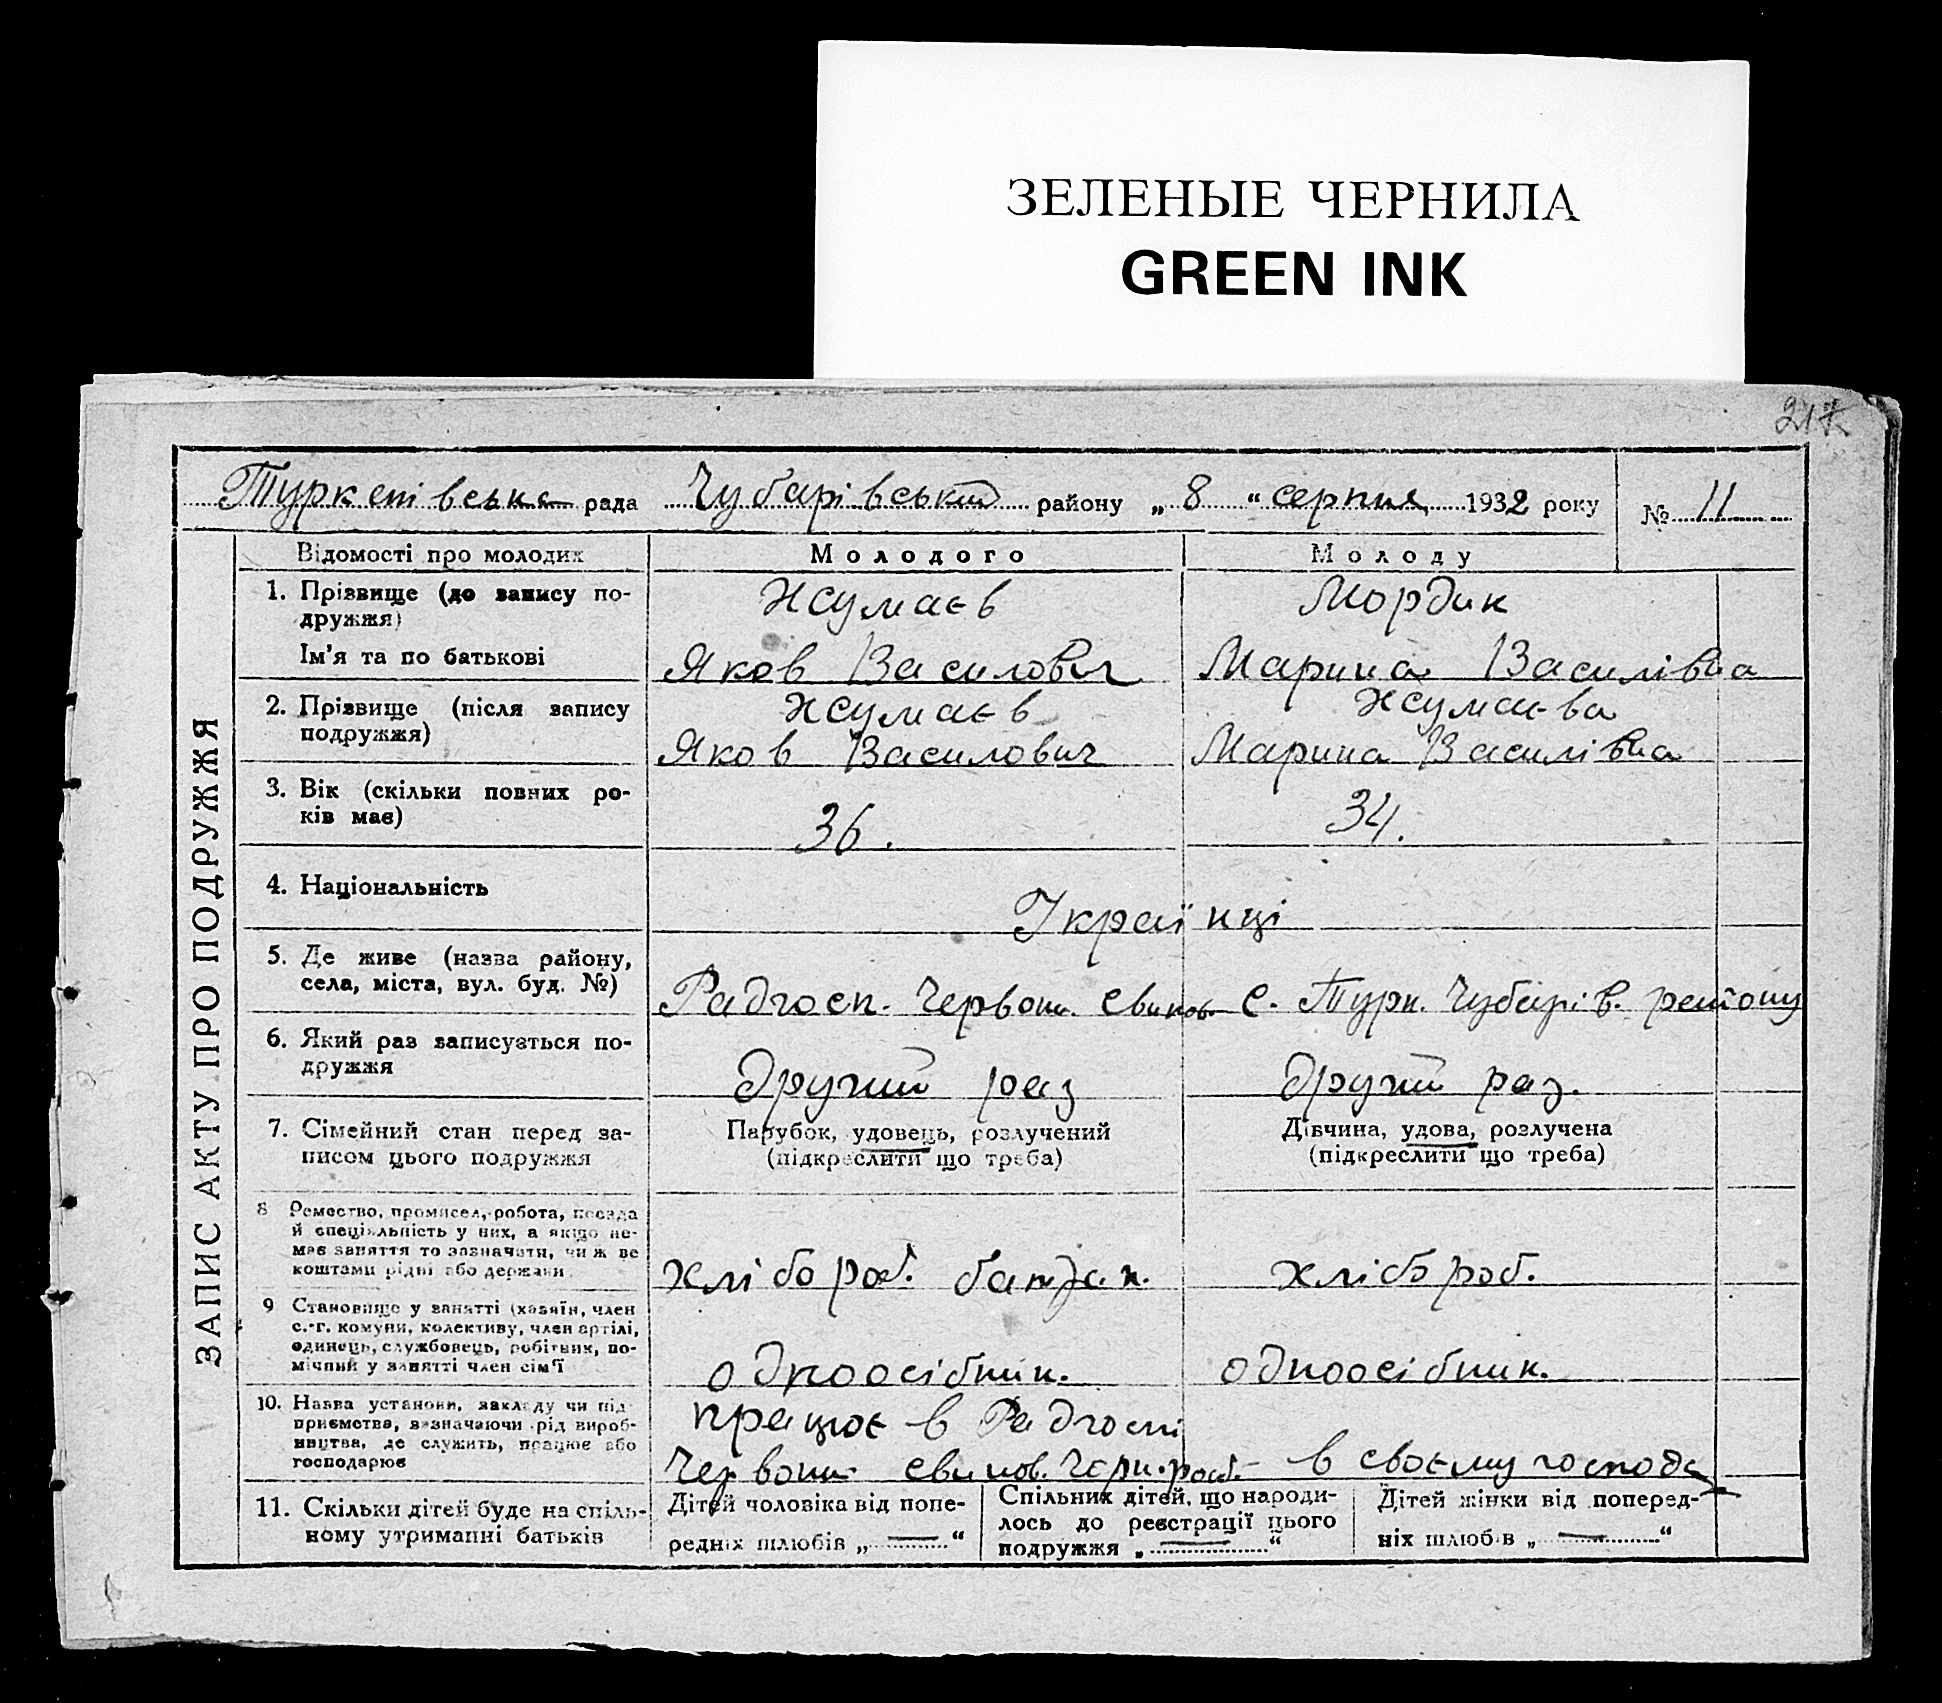 ЗЕЛЕНЫЕ ЧЕРНИЛА
GREEN INK
217
Туркенівська рада Чубарівський району „ 8 “ серпня 1932 року № 11
ЗАПИС АКТУ ПРО ПОДРУЖЖЯ
Відомості про молодих
Молодого
Молоду
1. Прізвище (до запису по-
дружжя)
Жумаєв
Мордик
Ім'я та по батькові
Яков Василович
Марина Василівна
2. Прізвище (після запису
подружжя)
Жумаєв
Яков Василович
Жумаєва
Марина Василівна
3. Вік (скільки повних ро-
ків має)
36.
34.
4. Національність
Українці
5. Де живе (назва району,
села, міста, вул. буд. №)
Радгосп. Червон. свинов.
с. Турк. Чубарів. району
6. Який раз записується по-
дружжя
другий раз
другий раз.
7. Сімейний стан перед за-
писом цього подружжя
Парубок, удовець, розлучений
(підкреслити що треба)
Дівчина, удова, розлучена
(підкреслити що треба)
8 Ремество, промисел, робота, посада
й спеціяльність у них, а якщо не-
має заняття то зазначити, чиж ве
коштами рідні або держави
хлібороб.
хлібороб.
9 Становище у занятті (хазяїн, член
с.-г. комуни, колективу, член артілі,
одинець, службовець, робітник, по-
мічний у занятті член сім'ї
одноосібник.
одноосібник.
10. Назва установи, закладу чи під-
приємства, взначаючи рід вироб-
ництва, де служить, працює або
господарює
працює в Радгоспі
Червон. свинов. Чорн.роб.
в своєму господ
11. Скільки дітей буде на спіль-
ному утриманні батьків
Дітей чоловіка від попе-
редніх шлюбів „ — “
Спільних дітей, що народи-
лось до реєстрації цього
подружжя „ — “
Дітей жінки від поперед-
ніх шлюбів „ — “